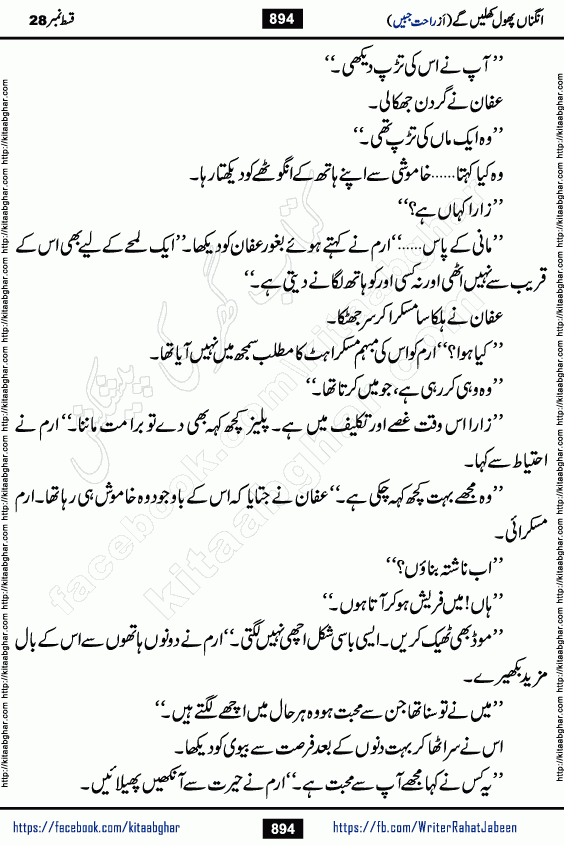 قسط نمبر 28
894
انگناں پھول کھلیں گے (از راحت جبیں)
’’آپ نے اس کی تڑپ دیکھی۔‘‘
عفان نے گردن جھکالی۔
’’وہ ایک ماں کی تڑپ تھی۔‘‘
وہ کیا کہتا......خاموشی سے اپنے ہاتھ کے انگوٹھے کو دیکھتا رہا۔
’’زارا کہاں ہے؟‘‘
’’مانی کے پاس......‘‘ارم نے کہتے ہوئے بغور عفان کو دیکھا۔’’ایک لمحے کے لیے بھی اس کے
قریب سے نہیں اٹھی اور نہ کسی اور کو ہاتھ لگانے دیتی ہے۔‘‘
عفان نے ہلکا سا مسکرا کر سر جھٹکا۔
’’کیا ہوا؟‘‘ارم کو اس کی مبہم مسکراہٹ کا مطلب سمجھ میں نہیں آیا تھا۔
’’وہ وہی کر رہی ہے، جو میں کرتا تھا۔‘‘
’’زارا اس وقت غصے اور تکلیف میں ہے۔ پلیز کچھ کہہ بھی دے تو برا مت ماننا۔‘‘ارم نے
احتیاط سے کہا۔
’’وہ مجھے بہت کچھ کہہ چکی ہے۔‘‘عفان نے جتایا کہ اس کے باوجود وہ خاموش ہی رہا تھا۔ ارم
مسکرائی۔
’’اب ناشتہ بناؤں؟‘‘
’’ہاں! میں فریش ہو کر آتا ہوں۔‘‘
’’موڈ بھی ٹھیک کریں۔ ایسی باسی شکل اچھی نہیں لگتی۔‘‘ارم نے دونوں ہاتھوں سے اس کے بال
مزید بکھیرے۔
’’میں نے تو سنا تھا جن سے محبت ہو وہ ہر حال میں اچھے لگتے ہیں۔‘‘
اس نے سر اٹھا کر بہت دنوں کے بعد فرصت سے بیوی کو دیکھا۔
’’یہ کس نے کہا مجھے آپ سے محبت ہے۔‘‘ارم نے حیرت سے آنکھیں پھیلائیں۔
https://facebook.com/kitaabghar
894
https://fb.com/WriterRahatJabeen
http://kitaabghar.com
kitaabghar.com
facebook.com/kitaabghar
کتاب گھر کی پیشکش